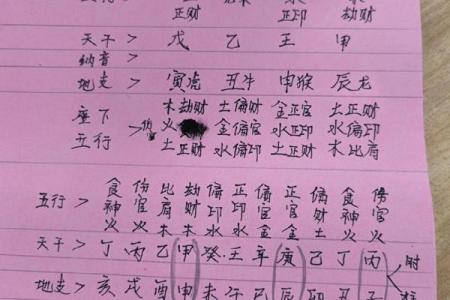 正财 正印 劫财
天干 > 戊 乙 壬 甲
纳音 >
地支 > 寅虎 丑牛 申猴 辰龙
座下 木劫财 土偏财 金正官 土正财
五行 > 火 金偏官 水正印 水偏印
土正财 水偏印 土正财 木比肩
食 伤 比 劫 偏 正 偏 正 偏 正 食 伤
五行 > 神 官 肩 财 印 印 官 官 财 财 神 官
火 火 木 木 水 水 金 金 土 土 火 火
天干 > 丁 丙 乙 甲 癸 壬 辛 庚 己 丁 丙 时
地支 > 亥 戌 酉 申 未 午 巳 辰